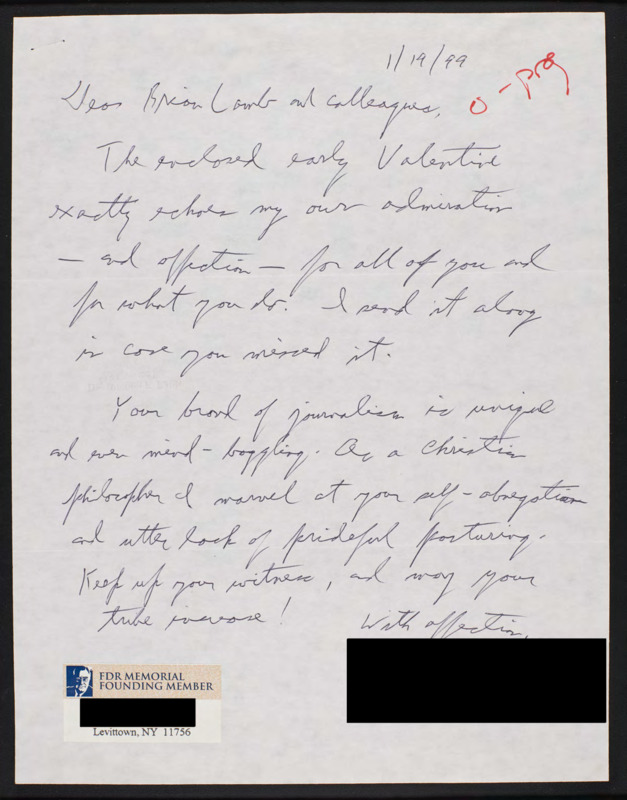 1/19/99
o - prg
Dear Brian Lamb and colleagues,
The enclosed early Valentine
exactly echoes my own admiration
— and affection — for all of you and
for what you do. I send it along
in case you missed it.
Your brand of journalism is unique
and even mind-boggling. As a Christian
philosopher I marvel at your self-abnegation
and utter lack of prideful posturing.
Keep up your witness, and may your
tribe increase!
With affection,
FDR MEMORIAL
FOUNDING MEMBER
Levittown, NY 11756